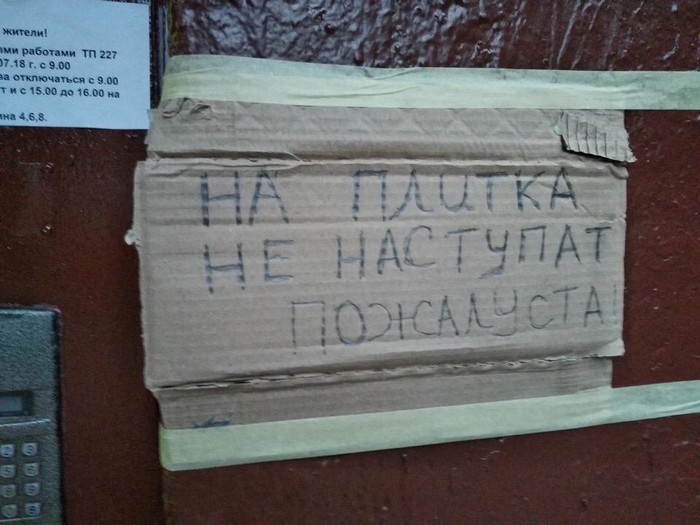 жители!
ыми работами ТП 227
07.18 г. с 9.00
ва отключаться с 9.00
т и с 15.00 до 16.00 на
ина 4,6,8.
НА ПЛИТКА
НЕ НАСТУПАТ
ПОЖАЛУСТА!